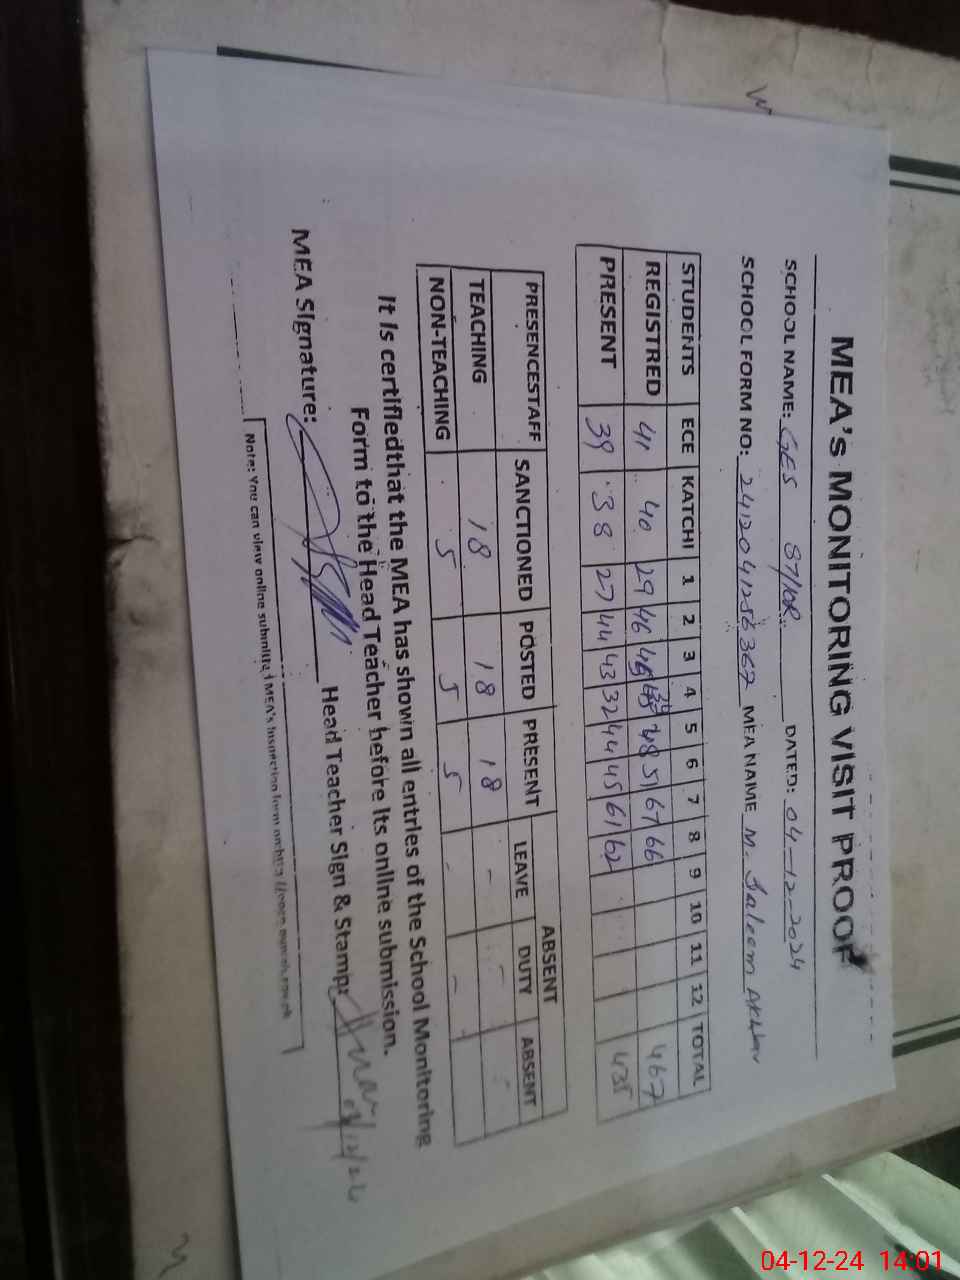 MEA's MONITORING VISIT PROOF
SCHOOL NAME: GES 87/10R DATED: 04-12-2024
SCHOOL FORM NO: 24120411256367 MEA NAME M. Saleem Akhtar
STUDENTS ECE KATCHI 1 2 3 4 5 6 7 8 9 10 11 12 TOTAL
REGISTRED 41 40 29 46 48 51 67 66 467
PRESENT 39 38 27 44 43 32 44 45 61 62 435
PRESENCESTAFF SANCTIONED POSTED PRESENT ABSENT
LEAVE DUTY ABSENT
TEACHING 18 18 18 - -
NON-TEACHING 5 5 5 - -
It is certifiedthat the MEA has shown all entries of the School Monitoring
Form to the Head Teacher before its online submission.
MEA Signature: Head Teacher Sign & Stamp:
Note: You can view online submitted MEA's Inspection form on:
04-12-24 14:01